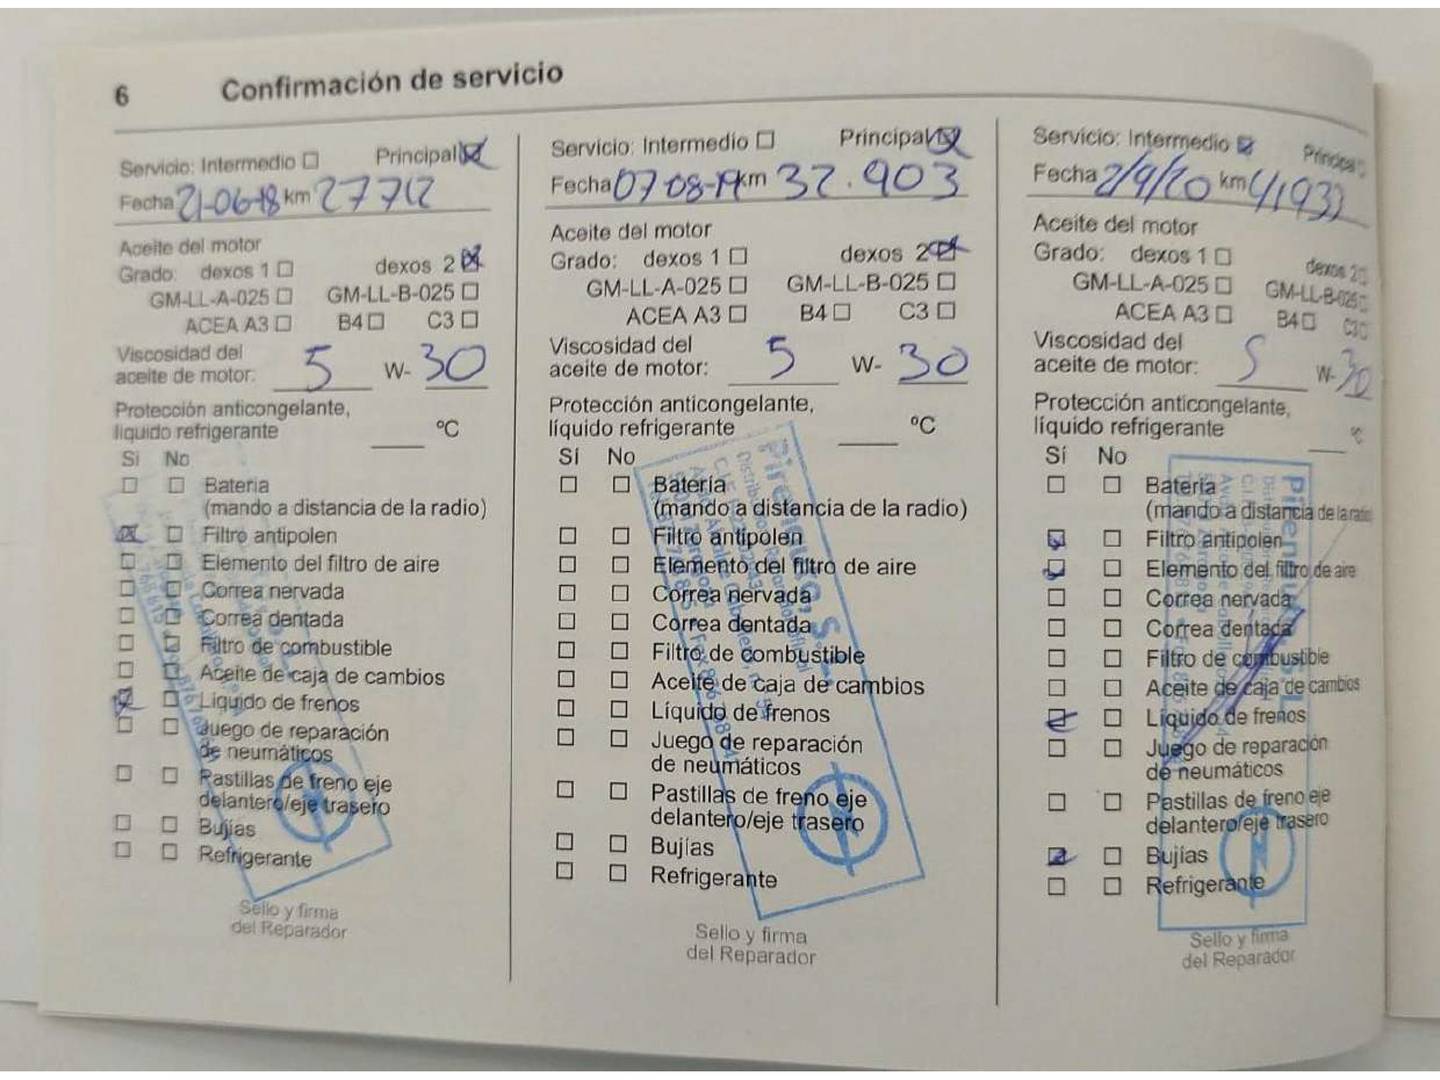 6 Confirmación de servicio
Servicio: Intermedio ☐ Principal ☒
Fecha 21-06-18 km 27712
Aceite del motor
Grado: dexos 1 ☐ dexos 2 ☒
GM-LL-A-025 ☐ GM-LL-B-025 ☐
ACEA A3 ☐ B4 ☐ C3 ☐
Viscosidad del
aceite de motor: 5 W- 30
Protección anticongelante,
líquido refrigerante ºC
Sí No
☐ ☐ Batería
(mando a distancia de la radio)
☒ ☐ Filtro antipolen
☐ ☐ Elemento del filtro de aire
☐ ☐ Correa nervada
☐ ☐ Correa dentada
☐ ☐ Filtro de combustible
☐ ☐ Aceite de caja de cambios
☒ ☐ Líquido de frenos
☐ ☐ Juego de reparación
de neumáticos
☐ ☐ Pastillas de freno eje
delantero/eje trasero
☐ ☐ Bujías
☐ ☐ Refrigerante
Sello y firma
del Reparador
Servicio: Intermedio ☐ Principal ☒
Fecha 07-08-19 km 32.903
Aceite del motor
Grado: dexos 1 ☐ dexos 2 ☒
GM-LL-A-025 ☐ GM-LL-B-025 ☐
ACEA A3 ☐ B4 ☐ C3 ☐
Viscosidad del
aceite de motor: 5 W- 30
Protección anticongelante,
líquido refrigerante ºC
Sí No
☐ ☐ Batería
(mando a distancia de la radio)
☐ ☐ Filtro antipolen
☐ ☐ Elemento del filtro de aire
☐ ☐ Correa nervada
☐ ☐ Correa dentada
☐ ☐ Filtro de combustible
☐ ☐ Aceite de caja de cambios
☐ ☐ Líquido de frenos
☐ ☐ Juego de reparación
de neumáticos
☐ ☐ Pastillas de freno eje
delantero/eje trasero
☐ ☐ Bujías
☐ ☐ Refrigerante
Sello y firma
del Reparador
Servicio: Intermedio ☒ Principal ☐
Fecha 2/9/20 km 41933
Aceite del motor
Grado: dexos 1 ☐ dexos 2 ☐
GM-LL-A-025 ☐ GM-LL-B-025 ☐
ACEA A3 ☐ B4 ☐ C3 ☐
Viscosidad del
aceite de motor: 5 W- 30
Protección anticongelante,
líquido refrigerante ºC
Sí No
☐ ☐ Batería
(mando a distancia de la radio)
☒ ☐ Filtro antipolen
☒ ☐ Elemento del filtro de aire
☐ ☐ Correa nervada
☐ ☐ Correa dentada
☐ ☐ Filtro de combustible
☐ ☐ Aceite de caja de cambios
☒ ☐ Líquido de frenos
☐ ☐ Juego de reparación
de neumáticos
☐ ☐ Pastillas de freno eje
delantero/eje trasero
☒ ☐ Bujías
☐ ☐ Refrigerante
Sello y firma
del Reparador